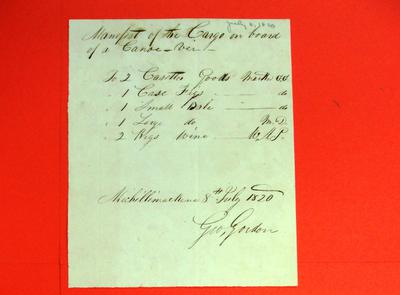 July 8, 1820
Manifest of the Cargo on board
of a Canoe – viz –
To 2 Casettes Goods Marked GG
" 1 Case Figs — do
" 1 Small Bale — do
" 1 Large do M.D.
" 2 Kegs Wine — W.M.P.
Michilimackinac 8th July 1820
Geo, Gordon